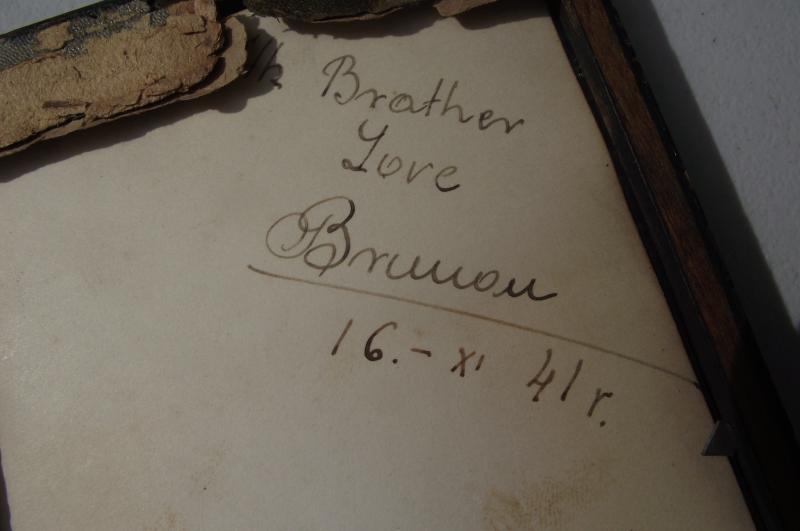 Brather
Love
Brunon
16.- XI 41 r.